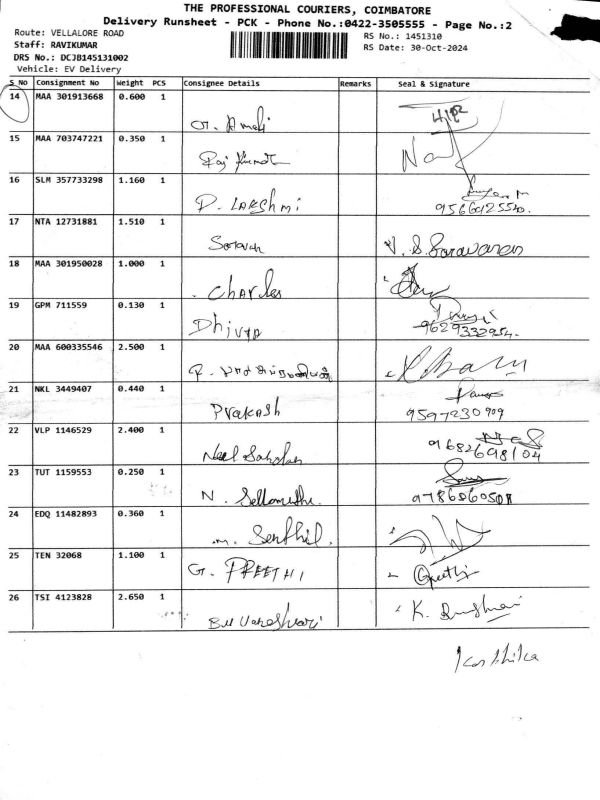 THE PROFESSIONAL COURIERS, COIMBATORE
Delivery Runsheet - PCK - Phone No.:0422-3505555 - Page No.:2
Route: VELLALORE ROAD
RS No.: 1451310
Staff: RAVIKUMAR
RS Date: 30-Oct-2024
DRS No.: DCJB145131002
Vehicle: EV Delivery
S No Consignment No Weight PCS Consignee Details Remarks Seal & Signature
14 MAA 301913668 0.600 1
15 MAA 703747221 0.350 1
Raj Kumar
16 SLM 357733298 1.160 1
D. LAKShmi
17 NTA 12731881 1.510 1
V. S. Saravanan
18 MAA 301950028 1.000 1
Charles
19 GPM 711559 0.130 1
Dhivya
9629332954
20 MAA 600335546 2.500 1
21 NKL 3449407 0.440 1
Prakash
9597230909
22 VLP 1146529 2.400 1
9682698104
23 TUT 1159553 0.250 1
N.
24 EDQ 11482893 0.360 1
m. Senthil.
25 TEN 32068 1.100 1
G. PREETHI Preethi
26 TSI 4123828 2.650 1
K.
Karthika